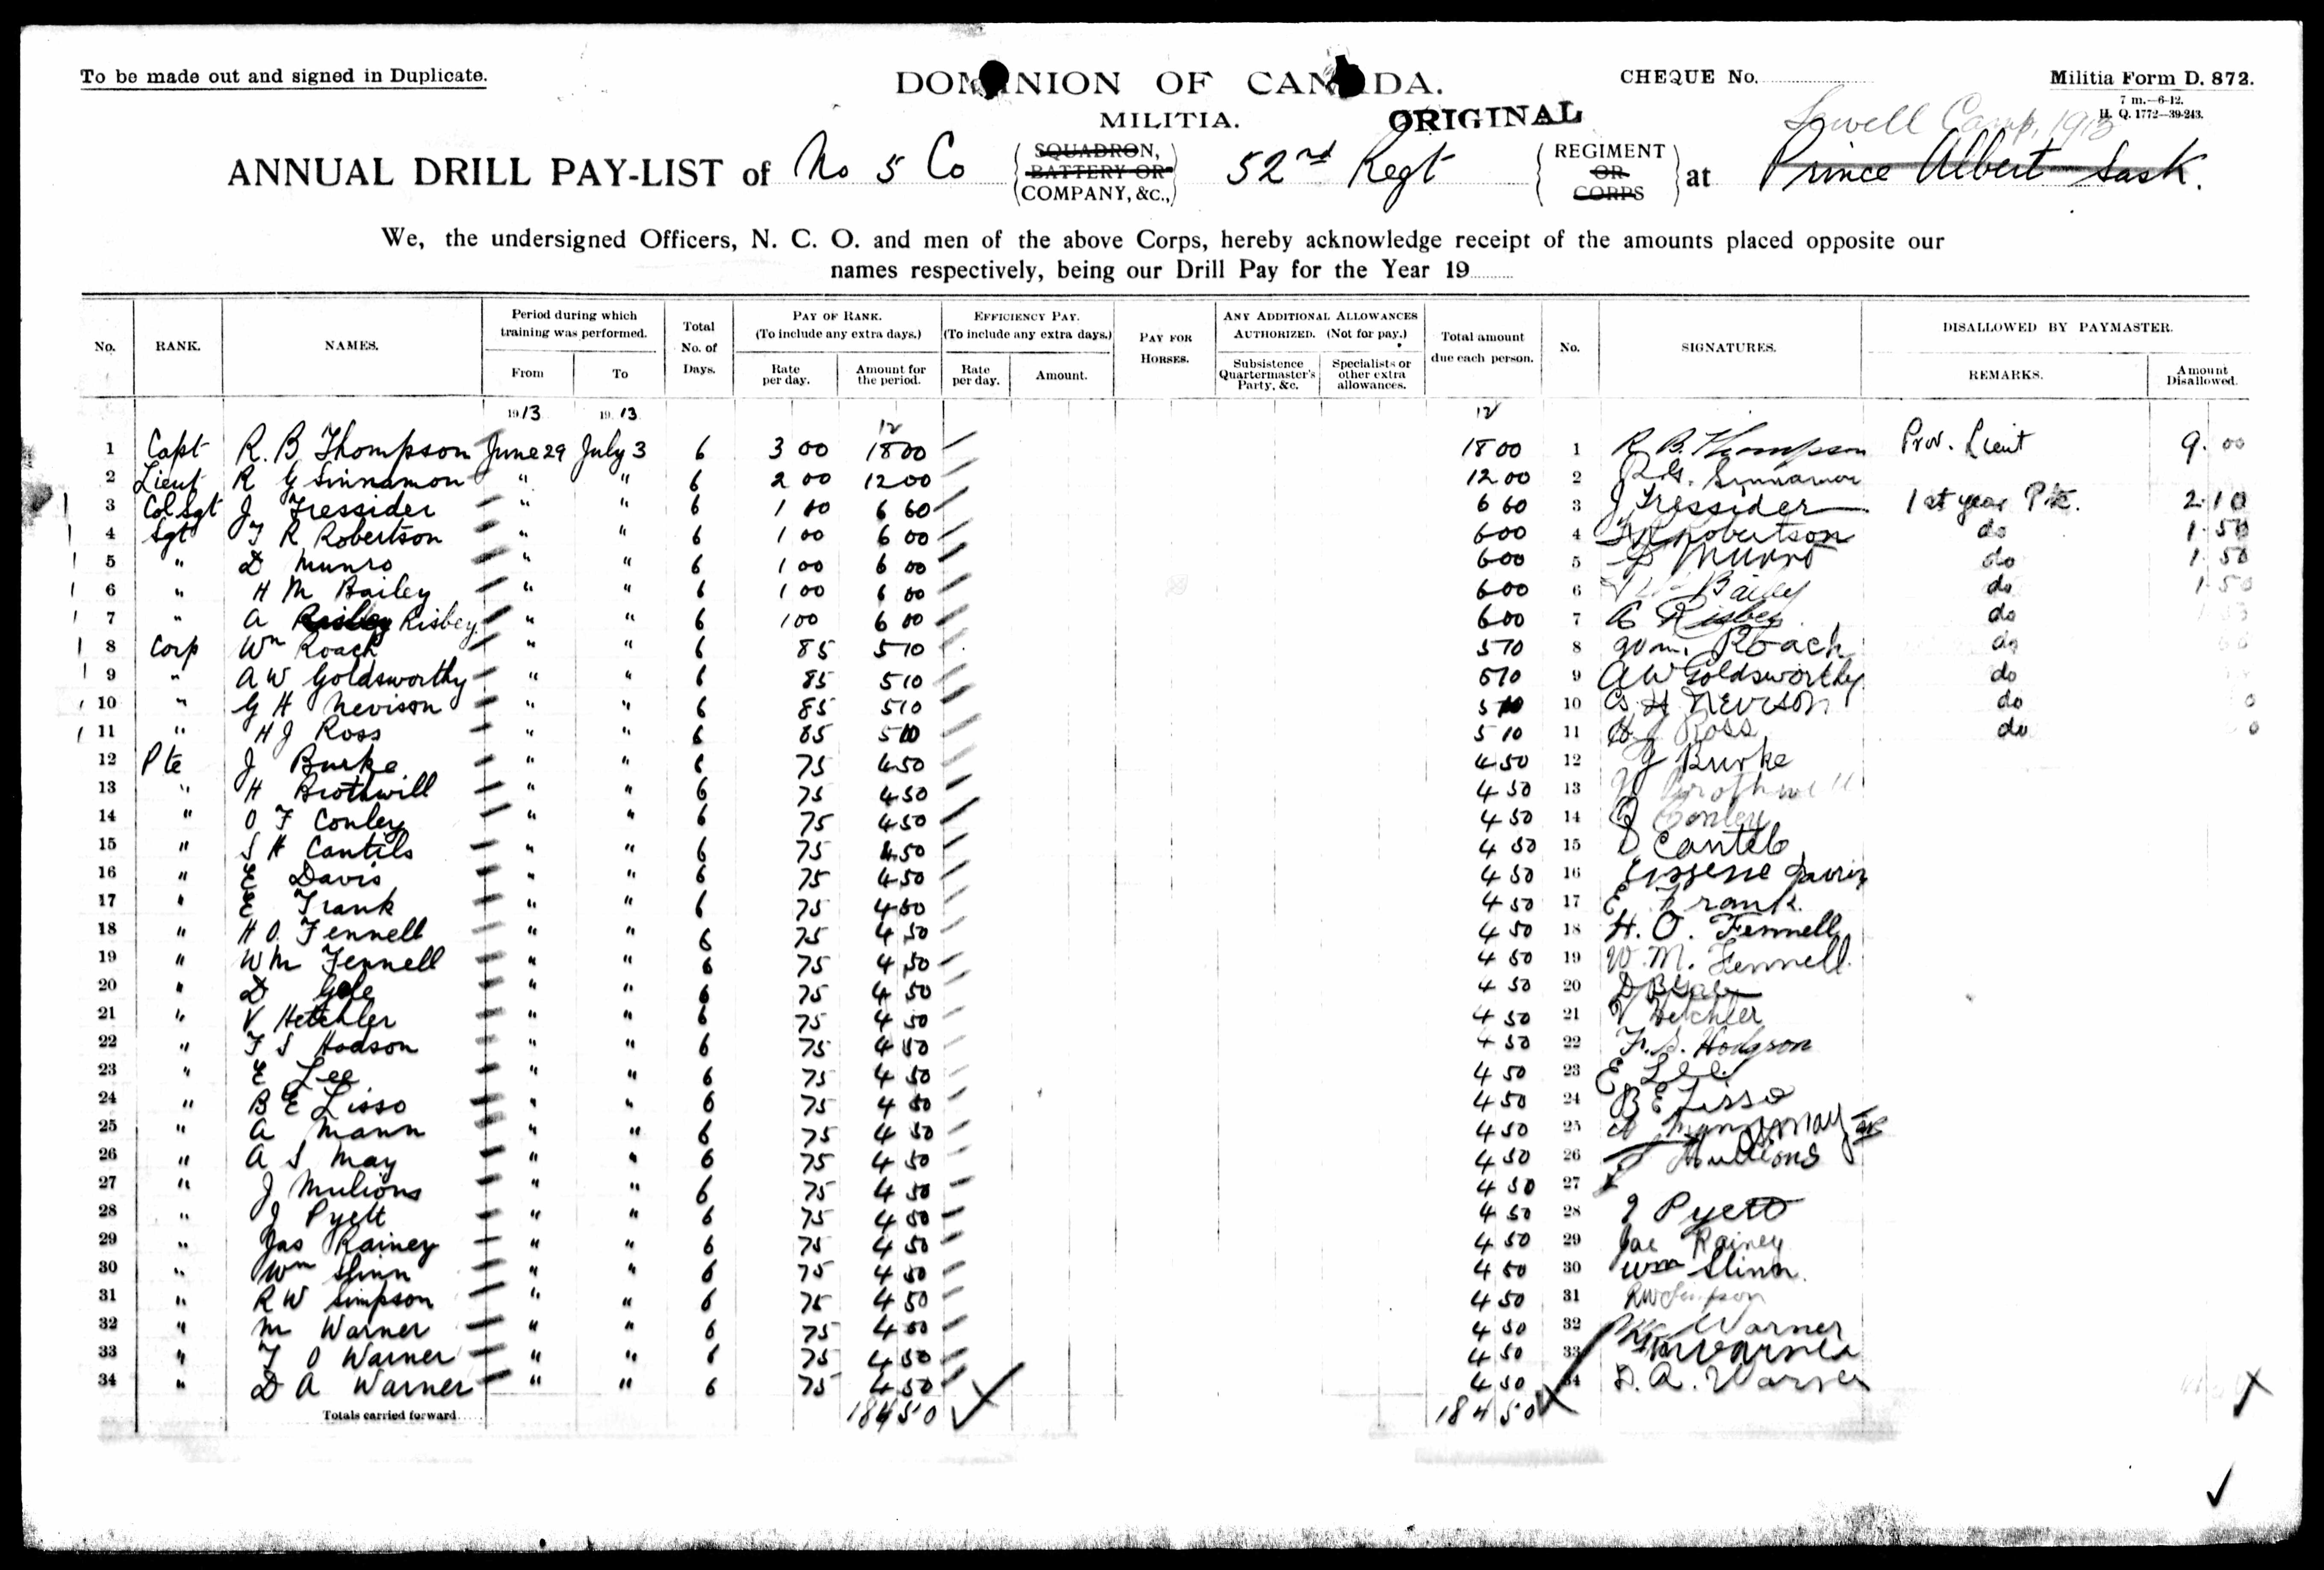 To be made out and signed in Duplicate.
DOMINION OF CANADA.
CHEQUE No.
Militia Form D. 872.
7 m.—6-12.
H. Q. 1772—39-243.
MILITIA.
ORIGINAL
Camp, 1913
ANNUAL DRILL PAY-LIST of No 5 Co SQUADRON, BATTERY OR COMPANY, &c., 52nd Regt REGIMENT OR CORPS at Prince Albert Sask.
We, the undersigned Officers, N. C. O. and men of the above Corps, hereby acknowledge receipt of the amounts placed opposite our
names respectively, being our Drill Pay for the Year 19
No. RANK. NAMES. Period during which training was performed. From To Total No. of Days. PAY OF RANK. (To include any extra days.) Rate per day. Amount for the period. EFFICIENCY PAY. (To include any extra days.) Rate per day. Amount. PAY FOR HORSES. ANY ADDITIONAL ALLOWANCES AUTHORIZED. (Not for pay.) Subsistence Quartermaster's Party, &c. Specialists or other extra allowances. Total amount due each person. No. SIGNATURES. DISALLOWED BY PAYMASTER. REMARKS. Amount Disallowed.
1913 1913 12 12
1 Capt R. B Thompson June 29 July 3 6 3 00 18 00 18 00 1 R B. Thompson Prov. Lieut 9.00
2 Lieut R G Sinnamon " " 6 2 00 12 00 12 00 2 R.G. Sinnamon
3 Col Sgt J Tressider " " 6 1 10 6 60 6 60 3 J Tressider 1st year Pte. 2.10
4 Sgt F R Robertson " " 6 1 00 6 00 6 00 4 F R Robertson do 1.50
5 " D Munro " " 6 1 00 6 00 6 00 5 D Munro do 1.50
6 " H M Bailey " " 6 1 00 6 00 6 00 6 Bailey do 1.50
7 " A Risbey Risbey. " " 6 1 00 6 00 6 00 7 A Risbey do
8 Corp Wm Roach " " 6 85 5 10 5 10 8 Wm. Roach do
9 " A W Goldsworthy " " 6 85 5 10 5 10 9 A W Goldsworthy do
10 " G H Nevison " " 6 85 5 10 5 10 10 G H Nevison do
11 " H J Ross " " 6 85 5 10 5 10 11 H J Ross do
12 Pte J Burke " " 6 75 4 50 4 50 12 J Burke
13 " H Brothwill " " 6 75 4 50 4 50 13 H Brothwell
14 " O F Conley " " 6 75 4 50 4 50 14 O Conley
15 " S H Cantils " " 6 75 4 50 4 50 15 S Cantelo
16 " E Davis " " 6 75 4 50 4 50 16 Eugene Davis
17 " E Frank " " 6 75 4 50 4 50 17 E Frank.
18 " H O. Fennell " " 6 75 4 50 4 50 18 H. O. Fennell
19 " Wm Fennell " " 6 75 4 50 4 50 19 W. M. Fennell.
20 " D Gole " " 6 75 4 50 4 50 20 D B
21 " V Hetchler " " 6 75 4 50 4 50 21 V Hetchler
22 " F S Hodson " " 6 75 4 50 4 50 22 Fr. S. Hodgson
23 " E Lee " " 6 75 4 50 4 50 23 E Lee
24 " B E Lisso " " 6 75 4 50 4 50 24 B E Lisso
25 " A Mann " " 6 75 4 50 4 50 25 A Mann May
26 " A S May " " 6 75 4 50 4 50 26 J Mullions
27 " J Mulions " " 6 75 4 50 4 50 27
28 " J Pyett " " 6 75 4 50 4 50 28 J Pyett
29 " Jas Rainey " " 6 75 4 50 4 50 29 Jas Rainey
30 " Wm Slinn " " 6 75 4 50 4 50 30 Wm Slinn.
31 " R W Simpson " " 6 75 4 50 4 50 31 RW Simpson
32 " M Warner " " 6 75 4 50 4 50 32 Warner
33 " F O Warner " " 6 75 4 50 4 50 33 Warner
34 " D A Warner " " 6 75 4 50 4 50 34 D. A. Warner
Totals carried forward 184 50 184 50